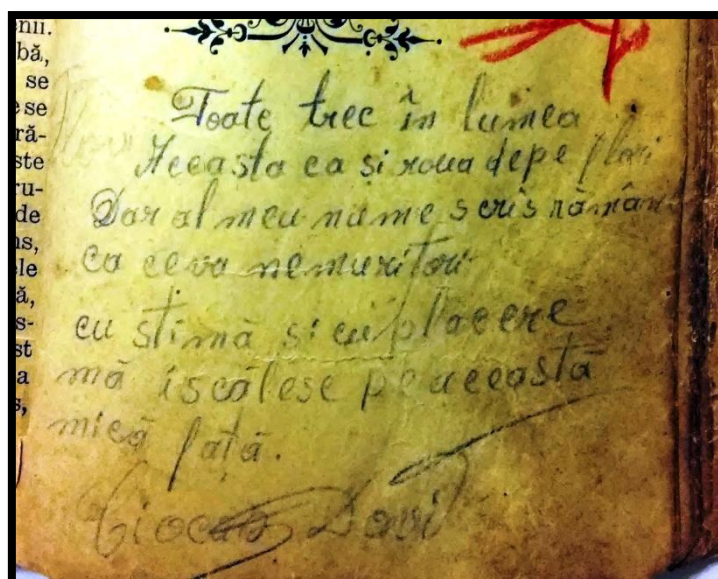 nii.
bă,
se
e se
ră-
ste
ru-
de
ns,
ele
ă,
s-
st
a
s,
Toate trec în lumea
Aceasta ca si roua depe flori
Dar al meu nume scris rămâne
ca ceva nemuritori
cu stimă si cu placere
mă iscălesc pe această
mică fată.
David